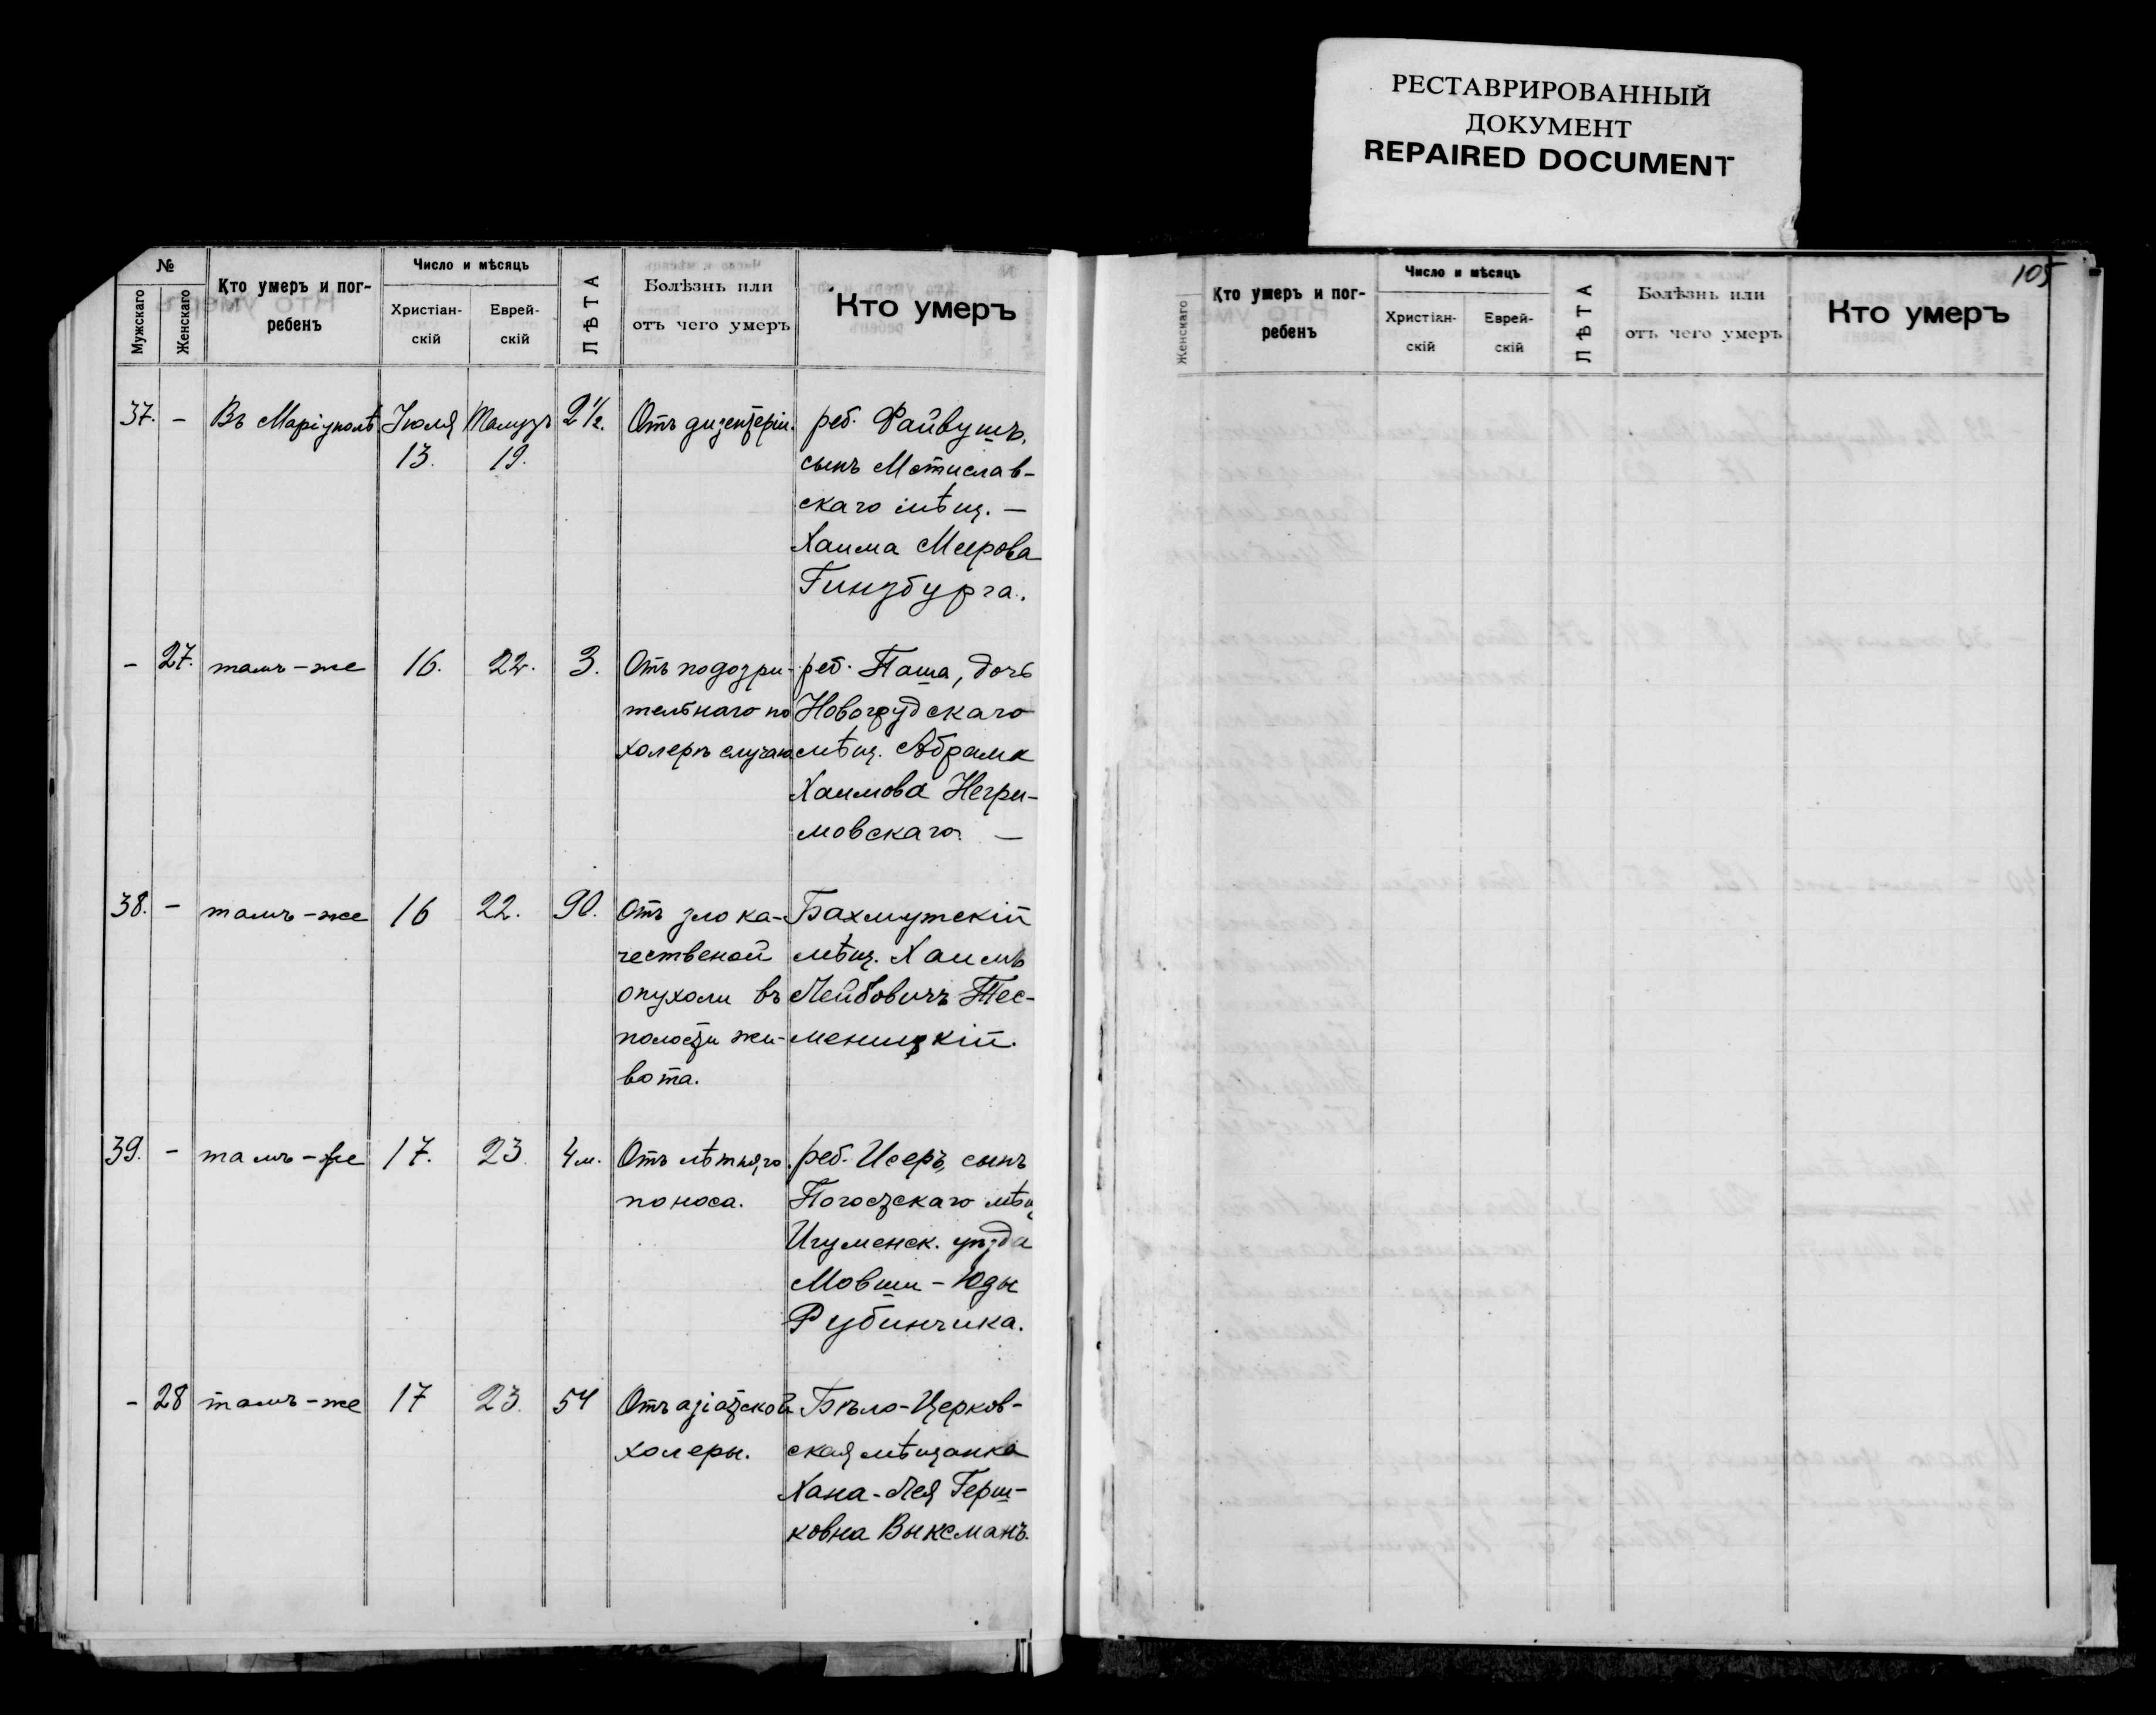 РЕСТАВРИРОВАННЫЙ
ДОКУМЕНТ
REPAIRED DOCUMENT
№
Мужскаго
Женскаго
Кто умеръ и пог-
ребенъ
Число и мѣсяцъ
Христіан-
скій
Еврей-
скій
ЛѢТА
Болѣзнь или
отъ чего умеръ
Кто умеръ
37. – Въ Маріуполѣ Іюля 13. Тамузъ 19. 2 1/2. Отъ дизентеріи.
реб. Файвушъ,
сынъ Мстислав-
скаго мѣщ. –
Хаима Меерова
Гинзбурга.
– 27. тамъ-же 16. 22. 3.
Отъ подозри-
тельнаго по
холерѣ случаю
реб. Паша, дочь
Новогрудскаго
мѣщ. Абрама
Хаимова Негри-
мовскаго. –
38. – тамъ-же 16 22. 90.
Отъ злока-
чественой
опухоли въ
полости жи-
вота.
Бахмутскій
мѣщ. Хаимъ
Лейбовичъ Тес-
меницкій.
39. – тамъ-же 17. 23 4 м.
Отъ лѣтняго
поноса.
реб. Исеръ, сынъ
Погостскаго мѣщ
Игуменск. уѣзда
Мовши-Юды
Рубинчика.
– 28 тамъ-же 17 23. 54
Отъ азіатской
холеры.
Бѣло-Церков-
ская мѣщанка
Хана-Лея Герш-
ковна Выксманъ.
105
Женскаго
Кто умеръ и пог-
ребенъ
Число и мѣсяцъ
Христіан-
скій
Еврей-
скій
ЛѢТА
Болѣзнь или
отъ чего умеръ
Кто умеръ